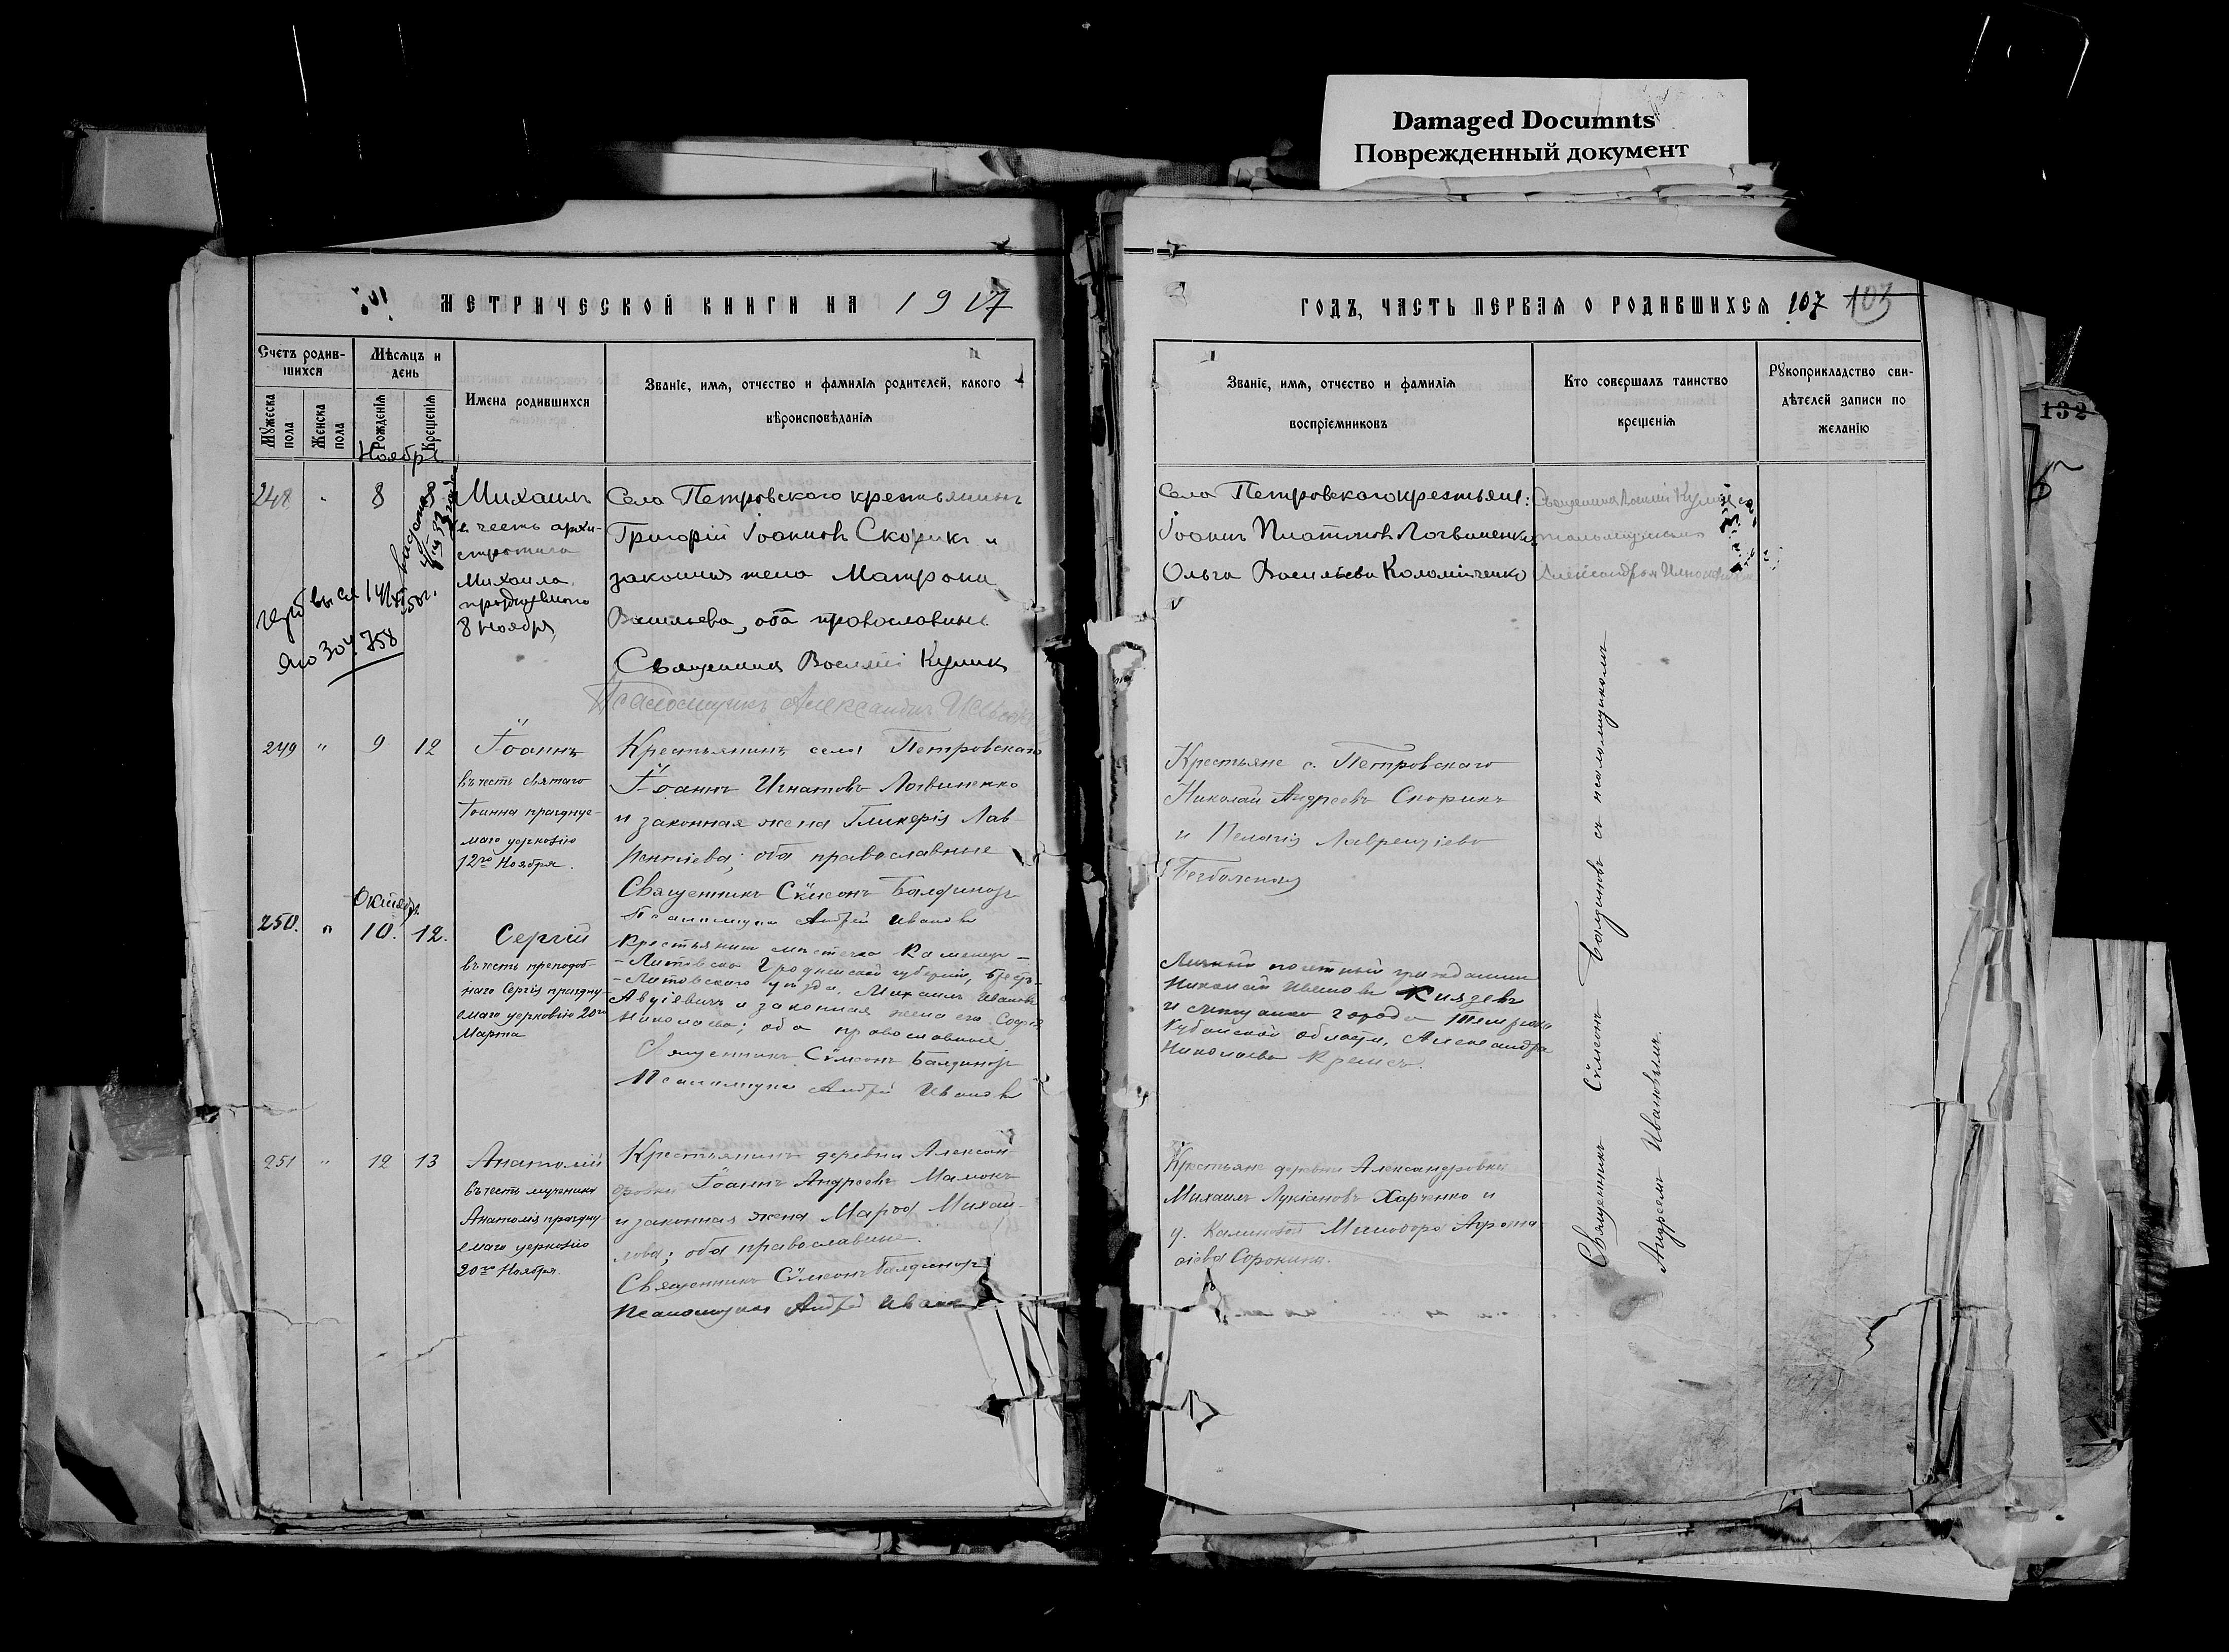 Damaged Documnts
Поврежденный документ
МЕТРИЧЕСКОЙ КНИГИ НА 1917
ГОДЪ, ЧАСТЬ ПЕРВАЯ О РОДИВШИХСЯ 107 103
132
Счетъ родив-
шихся
Мѣсяцъ и
день
Мужеска
пола
Женска
пола
Рожденія
Крещенія
Имена родившихся
Званіе, имя, отчество и фамилія родителей, какого
вѣроисповѣданія
Званіе, имя, отчество и фамилія
воспріемниковъ
Кто совершалъ таинство
крещенія
Рукоприкладство сви-
дѣтелей записи по
желанію
Ноябрь
248 " 8 8
Михаилъ
в честь архи-
стратига
Михаила
8 Ноября
яю 304758
Села Петровского крестьянинъ
Григорій Іоанновъ Скорикъ и
законная жена Матрона
Васильева, оба православные
Священник Василий Кулик
Псаломщикъ Александръ
Села Петровского крестьяне:
Іоаннъ Платоновъ Логвиненко
Ольга Васильева Коломійченко
Священник Василий Кулик
249 " 9 12
Іоаннъ
въ честь святаго
Іоанна празднуе-
маго церковію
12го Ноября.
Крестьянинъ села Петровскаго
Іоаннъ Игнатовъ Логвиненко
и законная жена Гликерія Лав-
рентіева; оба православные
Священникъ Сѵмеонъ Балдинов
Псаломщик Андрей Иванов
Крестьяне с. Петровскаго
Николай Андреевъ Скорикъ
и Пелагія Лаврентіева
Октябрь
250. " 10. 12.
Сергій
въ честь преподоб-
наго Сергія празднуе-
маго церковію 20го
Марта
Крестьянин местечка Каменец-
-Литовска Гродненской губерніи, Брестъ-
-Литовского уезда, Михаил Иванов
и законная жена его София
Николаева; оба православные
Священникъ Сѵмеонъ Балдинов
Псаломщик Андрей Иванов
Личный почетный гражданин
Николай Иванов Князев
и города Темрюка
Кубанской области, Александра
Николаева
251 " 12 13
Анатолій
въ честь мученика
Анатолія празднуе-
маго церковію
20го Ноября.
Крестьянинъ деревни Алексан-
дровки Іоаннъ Андреевъ Мамонъ
и законная жена Марфа Михай-
лова; оба православные.
Священникъ Сѵмеонъ Балдинов
Псаломщик Андрей Иванов
Крестьяне деревни Александровки
Михаилъ Лукіановъ Харченко и
д. Калиновой
Сорокина.
Священникъ Сѵмеонъ Балдиновъ съ псаломщикомъ
Андреемъ Ивановымъ.